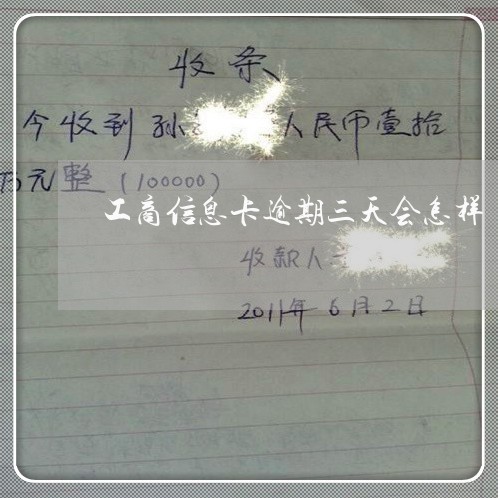 收条
今收到孙 人民币壹拾
万元整(100000)
工商信息卡逾期三天会怎样
收款人
2011年6月2日